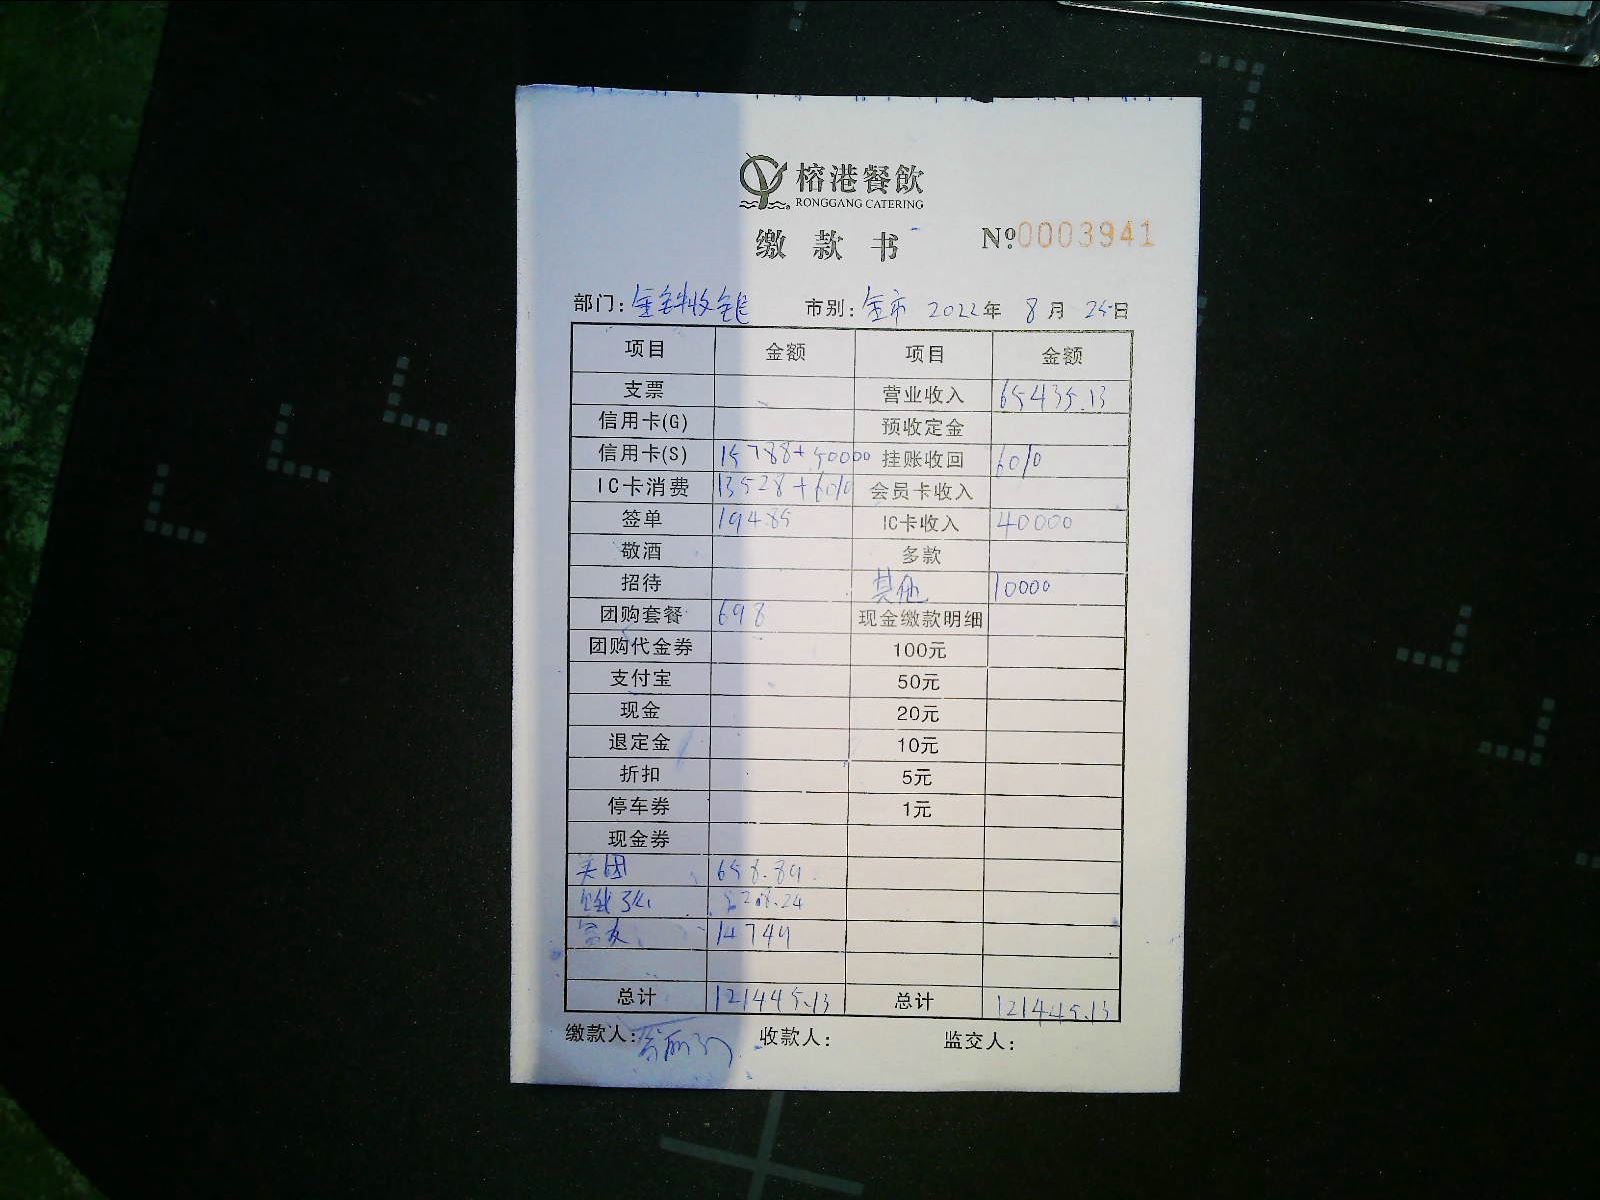 榕港餐飲
RONGGANG CATERING
缴款书 №0003941
部门: 收银 市别: 全市 2022年 8月 25日
项目 金额 项目 金额
支票 营业收入 65435.13
信用卡(G) 预收定金
信用卡(S) 15788+50000 挂账收回 6010
IC卡消费 13528+6010 会员卡收入
签单 19485 IC卡收入 40000
敬酒 多款
招待 其他 10000
团购套餐 698 现金缴款明细
团购代金券 100元
支付宝 50元
现金 20元
退定金 10元
折扣 5元
停车券 1元
现金券
美团 658.89
饿了么 528.24
14749
总计 121445.13 总计 121445.13
缴款人: 收款人: 监交人: